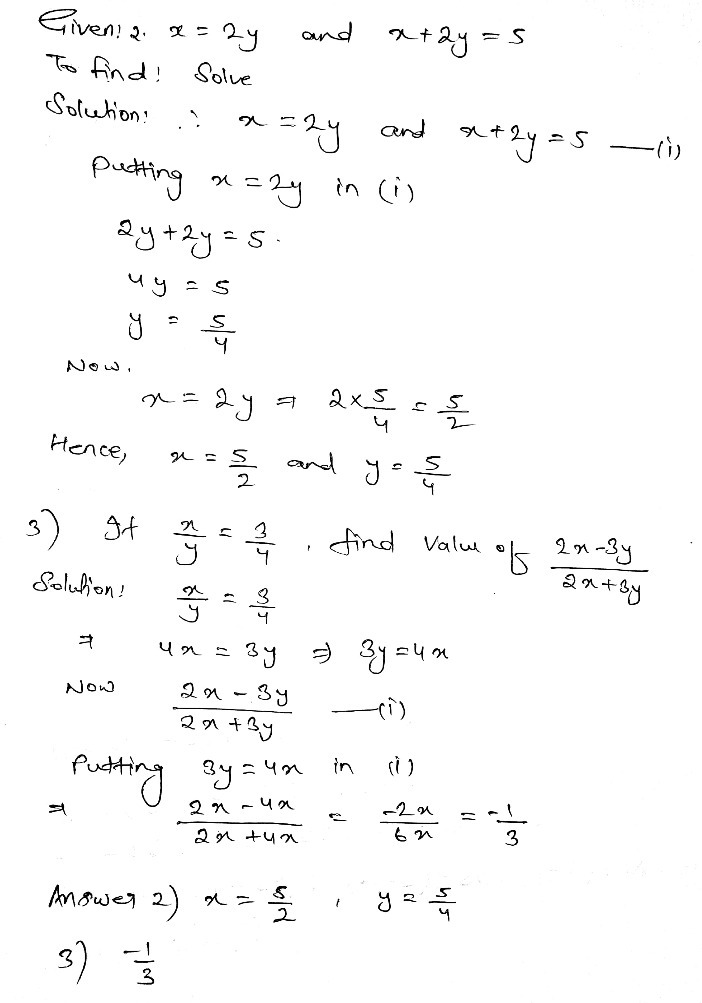 Given: 2. x = 2y and x+2y = 5
To find: Solve
Solution: ∴ x = 2y and x+2y = 5 —(i)
Putting x = 2y in (i)
2y + 2y = 5.
4y = 5
y = 5/4
Now,
x = 2y ⇒ 2×5/4 = 5/2
Hence, x = 5/2 and y = 5/4
3) If x/y = 3/4 , find value of (2x-3y)/(2x+3y)
Solution: x/y = 3/4
⇒ 4x = 3y ⇒ 3y = 4x
Now (2x-3y)/(2x+3y) —(i)
Putting 3y = 4x in (i)
⇒ (2x-4x)/(2x+4x) = -2x/6x = -1/3
Answer 2) x = 5/2 , y = 5/4
3) -1/3